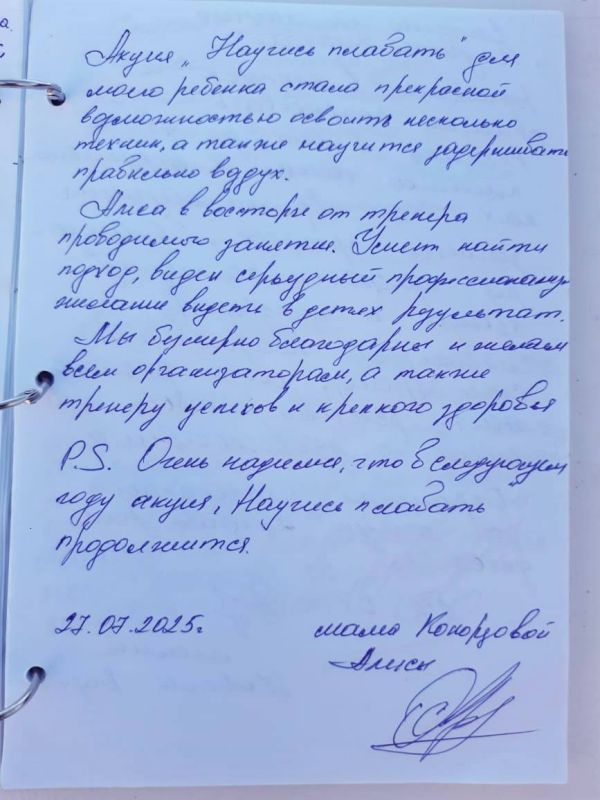 Акция „Научись плавать" для
моего ребенка стала прекрасной
возможностью освоить несколько
техник, а также научится задерживать
правильно воздух.
Алиса в восторге от тренера
проводимого занятие. Умеет найти
подход, виден серьезный профессионализм,
желание видеть в детях результат.
Мы безмерно благодарны и желаем
всем организаторам, а также
тренеру успехов и крепкого здоровья
P.S. Очень надеемся, что в следующем
году акция „Научись плавать
продолжится.
27.07.2025г
мама
Алисы